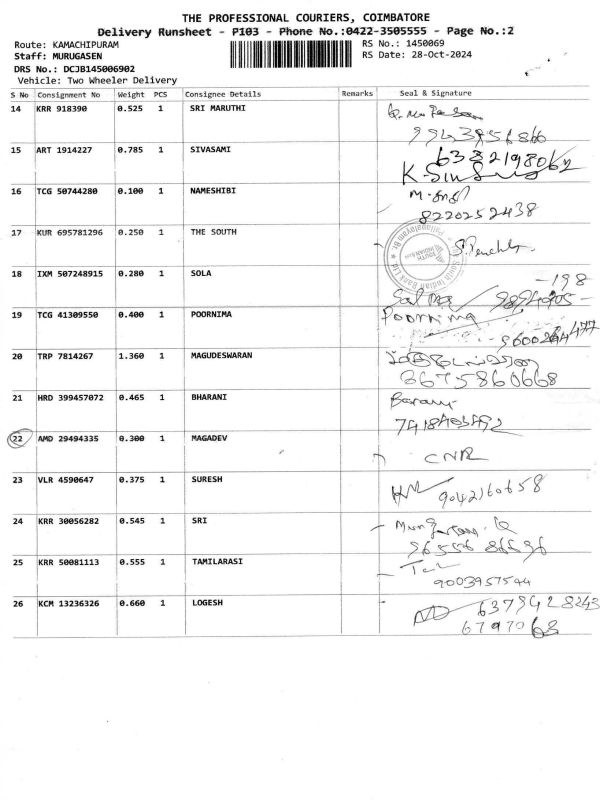 THE PROFESSIONAL COURIERS, COIMBATORE
Delivery Runsheet - P103 - Phone No.:0422-3505555 - Page No.:2
Route: KAMACHIPURAM RS No.: 1450069
Staff: MURUGASEN RS Date: 28-Oct-2024
DRS No.: DCJB145006902
Vehicle: Two Wheeler Delivery
S No Consignment No Weight PCS Consignee Details Remarks Seal & Signature
14 KRR 918390 0.525 1 SRI MARUTHI
9943956866
15 ART 1914227 0.785 1 SIVASAMI
6382198062
16 TCG 50744280 0.100 1 NAMESHIBI
8220252438
17 KUR 695781296 0.250 1 THE SOUTH
South Indian Bank Ltd
18 IXM 507248915 0.280 1 SOLA
-198
19 TCG 41309550 0.400 1 POORNIMA
Poornima
20 TRP 7814267 1.360 1 MAGUDESWARAN
8675860668
21 HRD 399457072 0.465 1 BHARANI
22 AMD 29494335 0.300 1 MAGADEV
CNR
23 VLR 4590647 0.375 1 SURESH
9042160658
24 KRR 30056282 0.545 1 SRI
25 KRR 50081113 0.555 1 TAMILARASI
9003957544
26 KCM 13236326 0.660 1 LOGESH
6379428243